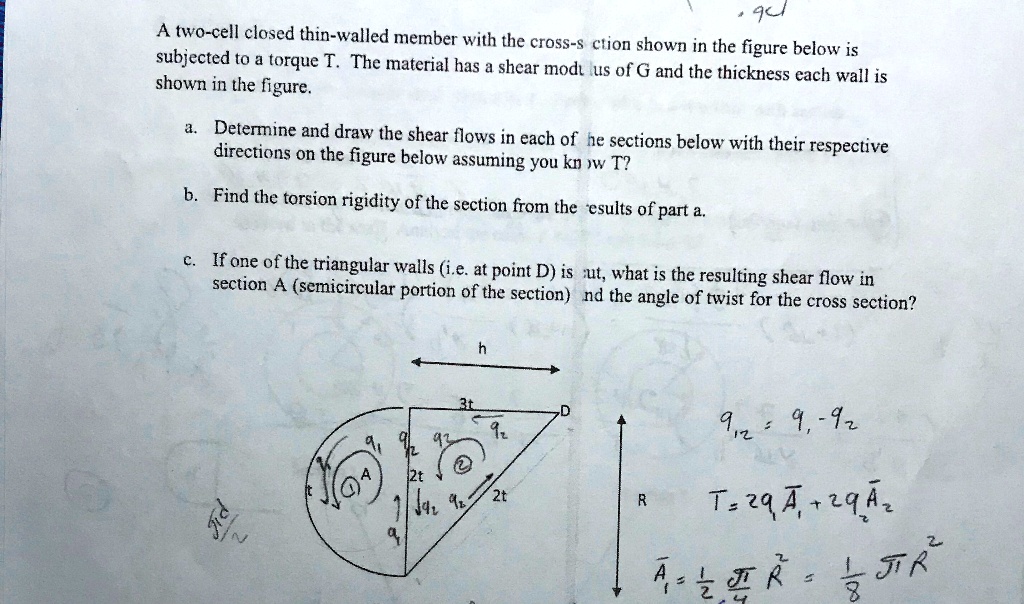 . qcl
A two-cell closed thin-walled member with the cross-s ction shown in the figure below is
subjected to a torque T. The material has a shear modu lus of G and the thickness each wall is
shown in the figure.
a. Determine and draw the shear flows in each of he sections below with their respective
directions on the figure below assuming you kn ow T?
b. Find the torsion rigidity of the section from the esults of part a.
c. If one of the triangular walls (i.e. at point D) is ut, what is the resulting shear flow in
section A (semicircular portion of the section) nd the angle of twist for the cross section?
h
3t D
q₂
q₁ q₁₂ q₂
A 2t 2
1
t q₂ q₂ 2t
q₁
R
πd/2
q₁₂ = q₁ - q₂
T = 2q₁Ā₁ + 2q₂Ā₂
Ā₁ = 1/2 . π/4 R² = 1/8 π R²